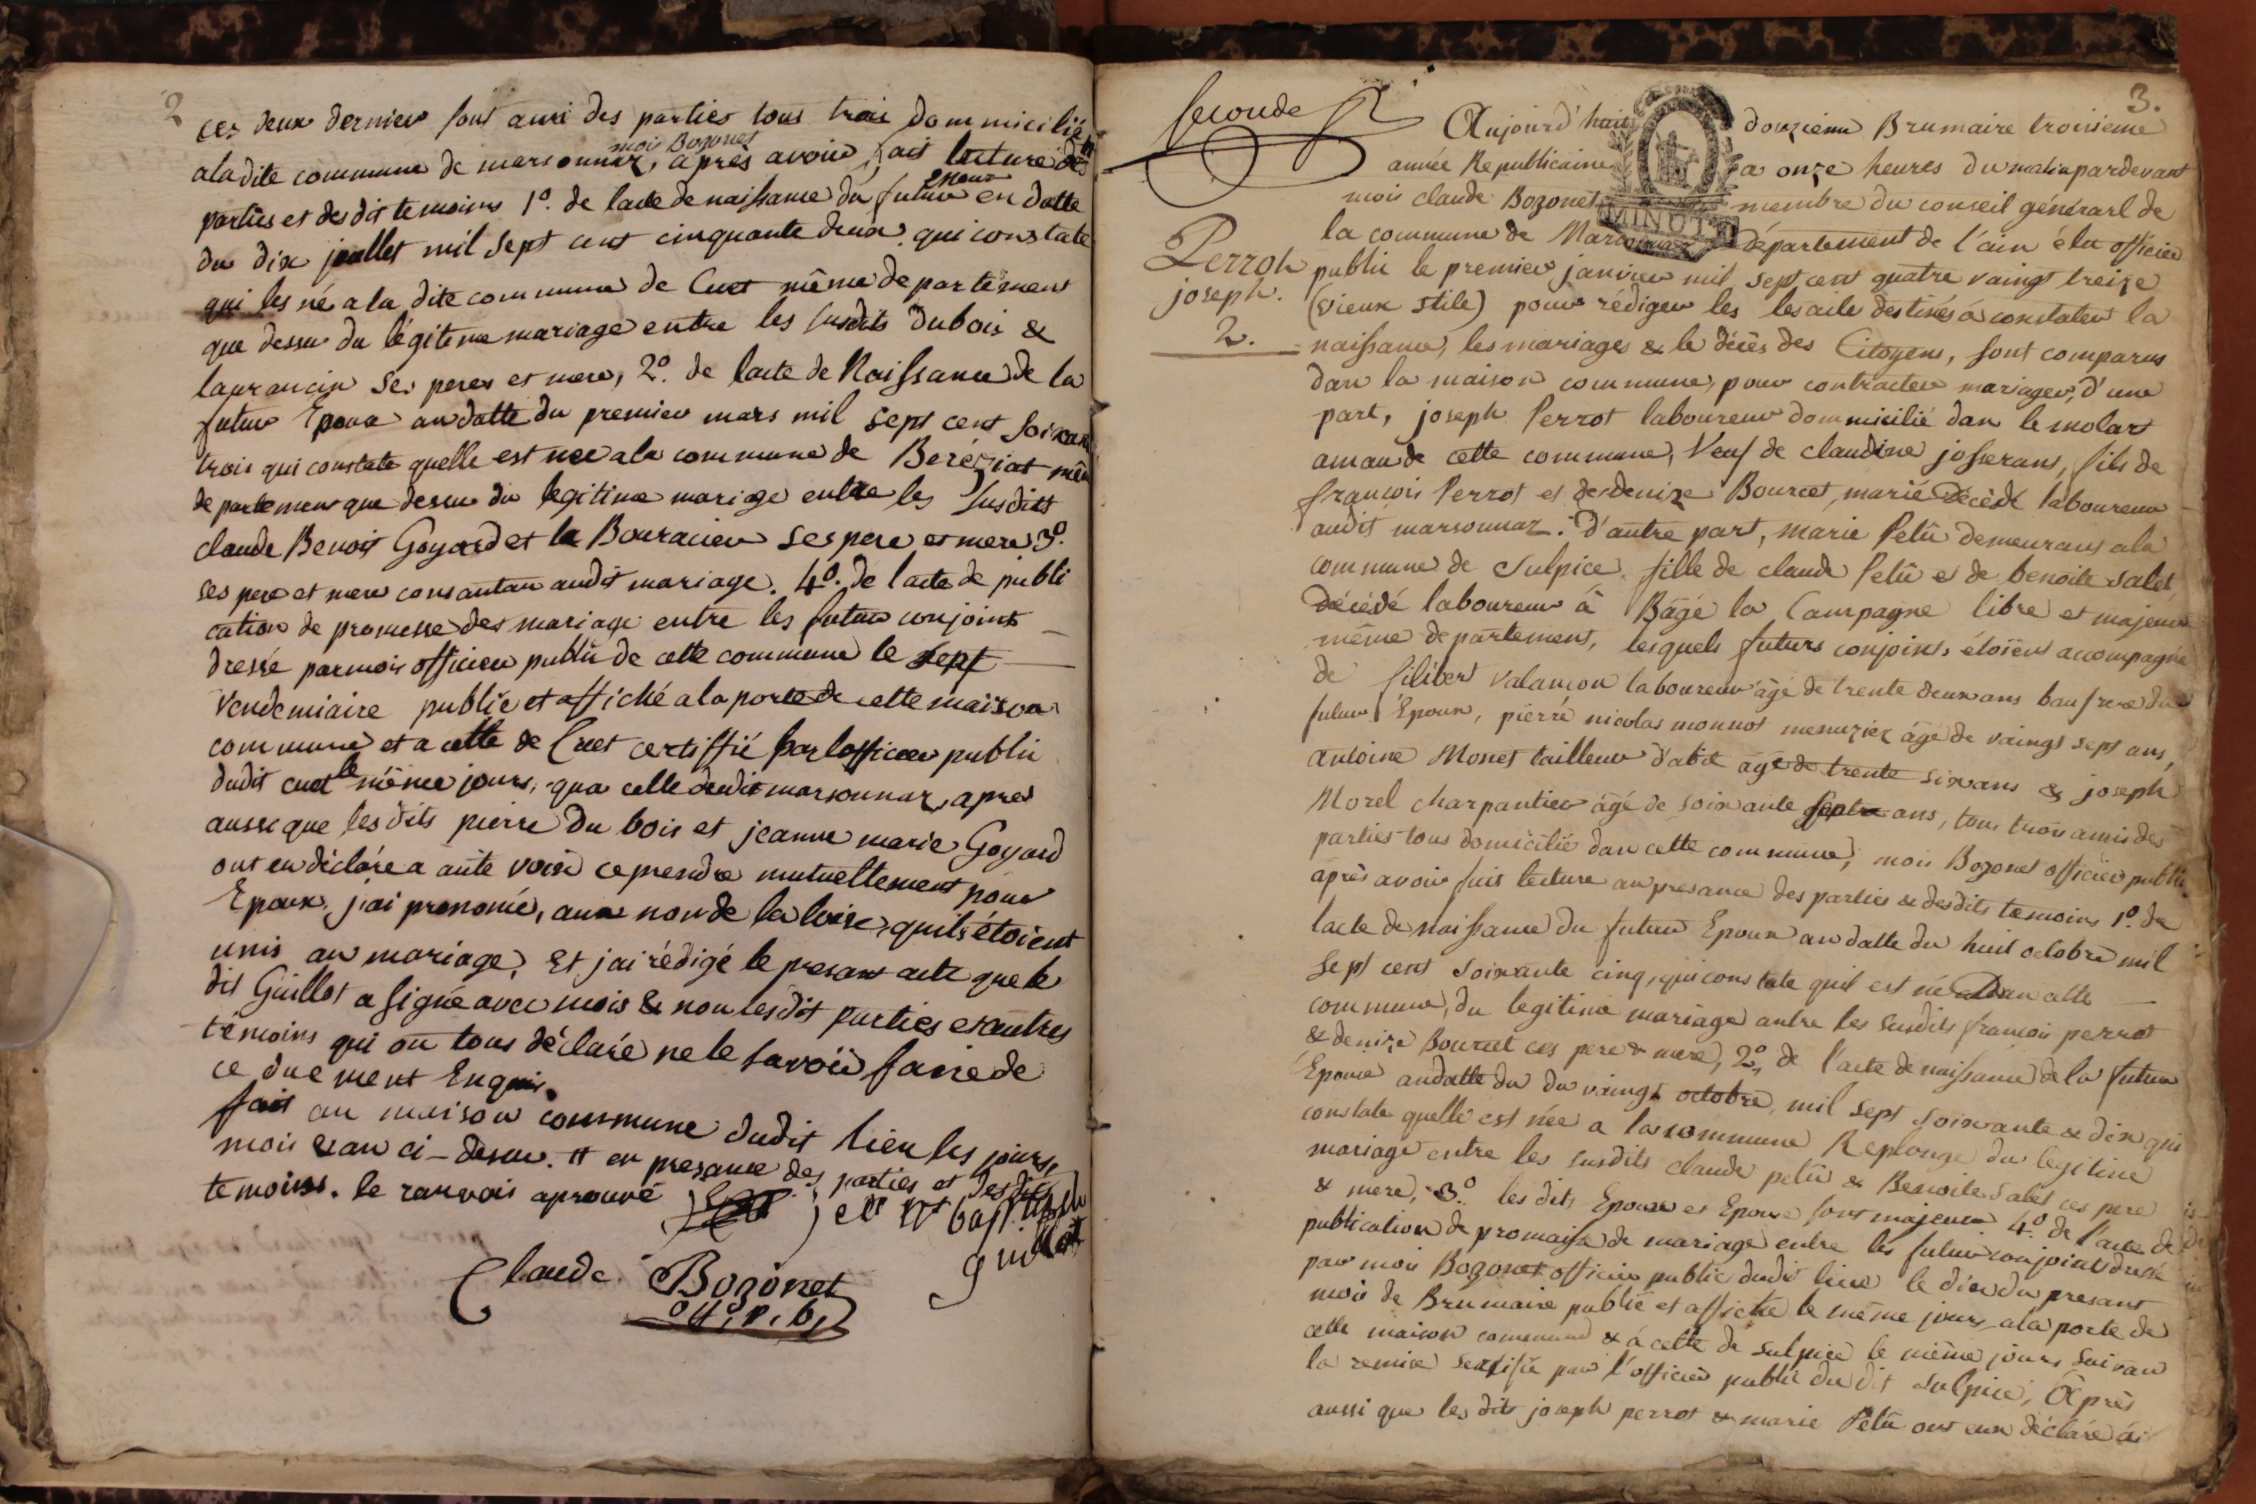 2
ces deux dernier sont ami des parties tous trois dommicilié
a la dite commune de marsonnaz, après avoir fait lecture des #
mois Bozonet
parties et desdit temoins 1º. de lacte de naissance du futur en datte
epoux
du dix juillet mil sept cent cinquante deux qui constate
qui les né a la dite commune de Cuet même departement
que dessu du légitime mariage entre les susdits dubois &
laurancin ses peres et mere, 2º. de lacte de Naissance de la
futur Epoux an datte du premier mars mil sept cent soixante
trois qui constate quelle est née a la commune de Beréziat même
departement que dessu du legitime mariage entre les susdits
claude Benoit Goyard et la Bouracier ses pere et mere, 3º.
ses pere et mere consantan audit mariage. 4º. de lacte de publi
cation de promesse des mariage entre les futur conjoint
dressé parmois officier public de cette commune le sept
Vendemiaire publié et affiché a la porte de cette maison
commune et a cette de Cuet certiffié par lofficier public
dudit cuet le même jours, qua celle dudit marsonnaz, apres
aussi que lesdits pierre du bois et jeanne marie Goyard
ont en déclaré a aute voix ce prendre mutuellement pour
Epoux, j'ai prononcé, aux non de la loix, quils étoient
unis an mariage, Et j'ai rédigé le presant acte que le
dit Guillot a signé avec mois & non lesdit parties et autres
témoins qui on tous déclaré ne le savoir faire de
ce duement Enquis.
fait an maison commune dudit lieu les jours,
mois & an ci-dessu. # en presance des parties et desdits
temoins. le ranvois aprouvé
Claude Bozonet
off, p. b,
guillot
3.
seconde
Aujourd'huit douzieme Brumaire troisieme
année Republicaine a onze heures du matin pardevant
mois claude Bozonet membre du conseil générarl de
MINUTE
la commune de Marsonnaz département de l'ain élu officier
Perrot
joseph.
2.
public le premier janvier mil sept cent quatre vaingt treize
(vieux stile) pour rédiger les lesacte destinés à constater la
naissance, les mariages & le décès des Citoyens, sont comparus
dan la maison commune, pour contracter mariager, d'une
part, joseph Perrot laboureur dommicilié dan le molart
aman de cette commune, Veuf de claudine josserans, fils de
françois Perrot et de denize Bourcet, marié décédé laboureur
audit marsonnaz. d'autre part, marie Petû demeurans a la
commune de Sulpice fille de claude Petû et de benoite salet
décédé laboureur à Bâgé la Campagne libre et majeure
même departement, lesquels futurs conjoints étoient accompagné
de filibert valançon laboureur âgé de trente deux ans baufrere du
futur Epoux, pierre nicolas monnot menuzier âgé de vaingt sept ans,
antoine Monet tailleur d'abit âgé de trente six ans & joseph
Morel charpantier âgé de soixante septe ans, tous trois amis des
parties tous domicilié dan cette commune, mois Bozonet officier public
après avoir fais lecture an presance des parties & desdits temoins 1º. de
lacte de naissance du futur Epoux an datte du huit octobre mil
sept cent soixante cinq, qui constate quil est né dan cette
commune, du legitime mariage antre les susdits françois perrot
& denize Bourcet ces pere & mere, 2º. de l'acte de naissance de la futur
Epouse an datte du du vaingt octobre, mil sept soixante & dix qui
constate quelle est née a la commune Replonge du legitime
mariage entre les susdits claude petû & Benoite Salet ces pere
& mere, 3º. les dits Epoux et Epouse sont majeure 4º. de l'acte de
publication de promaisse de mariage entre les futur conjoint dressé
par mois Bozonet officier public dudit lieu le dix du presant
mois de Brumaire publié et affiché le même jours a la porte de
cette maison commune & à cette de Sulpice le même jours suivan
la remise sertifié par l'officier public du dit Sulpice, Après
aussi que les dits joseph perrot & marie Petû ont eux déclaré à